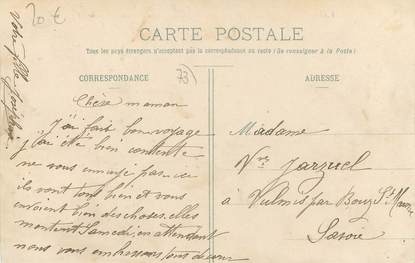 20 €
CARTE POSTALE
Tous les pays étrangers n'acceptent pas la correspondance au recto (Se renseigner à la Poste)
CORRESPONDANCE
73
ADRESSE
Chère maman
J'ai fait bon voyage
j'ai été bien contente
ne vous pas ici
ils vont tous bien et vous
envoient bien des choses. elles
montent Samedi en attendant
nous vous embrassons tous de cœur
Votre fille
Madame
Vve Jarzuel
à Vulmis par Bourg St Maurice
Savoie